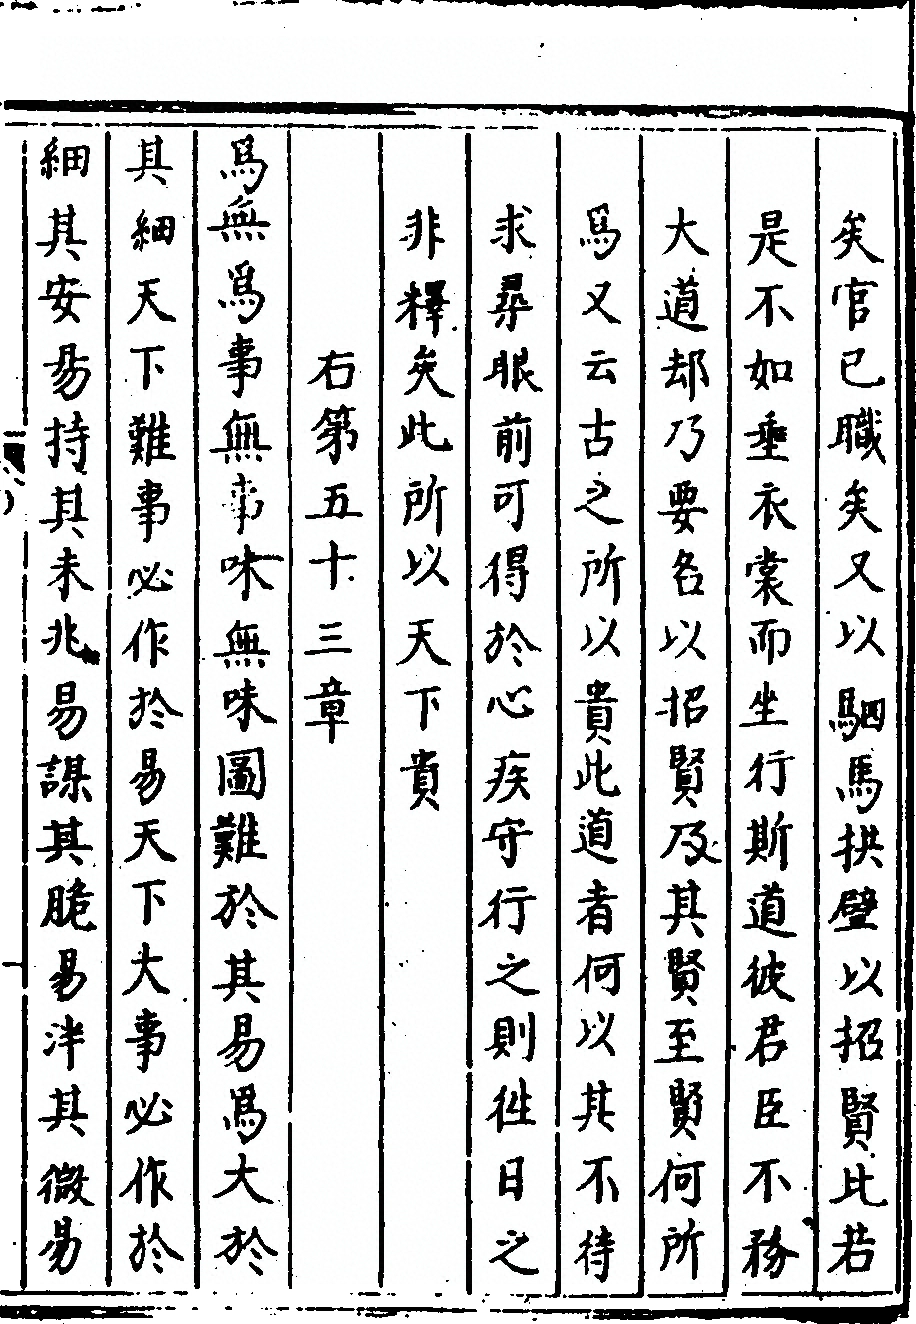 矣官已職矣又以駟馬拱璧以招賢比若
是不如垂衣裳而坐行斯道彼君臣不務
大道却乃要名以招賢及其賢至賢何所
爲又云古之所以貴此道者何以其不待
求尋眼前可得於心疾守行之則徃日之
非釋矣此所以天下貴
右第五十三章
爲無爲事無事味無味圖難於其易爲大於
其細天下難事必作於易天下大事必作於
細其安易持其未兆易謀其脆易泮其微易